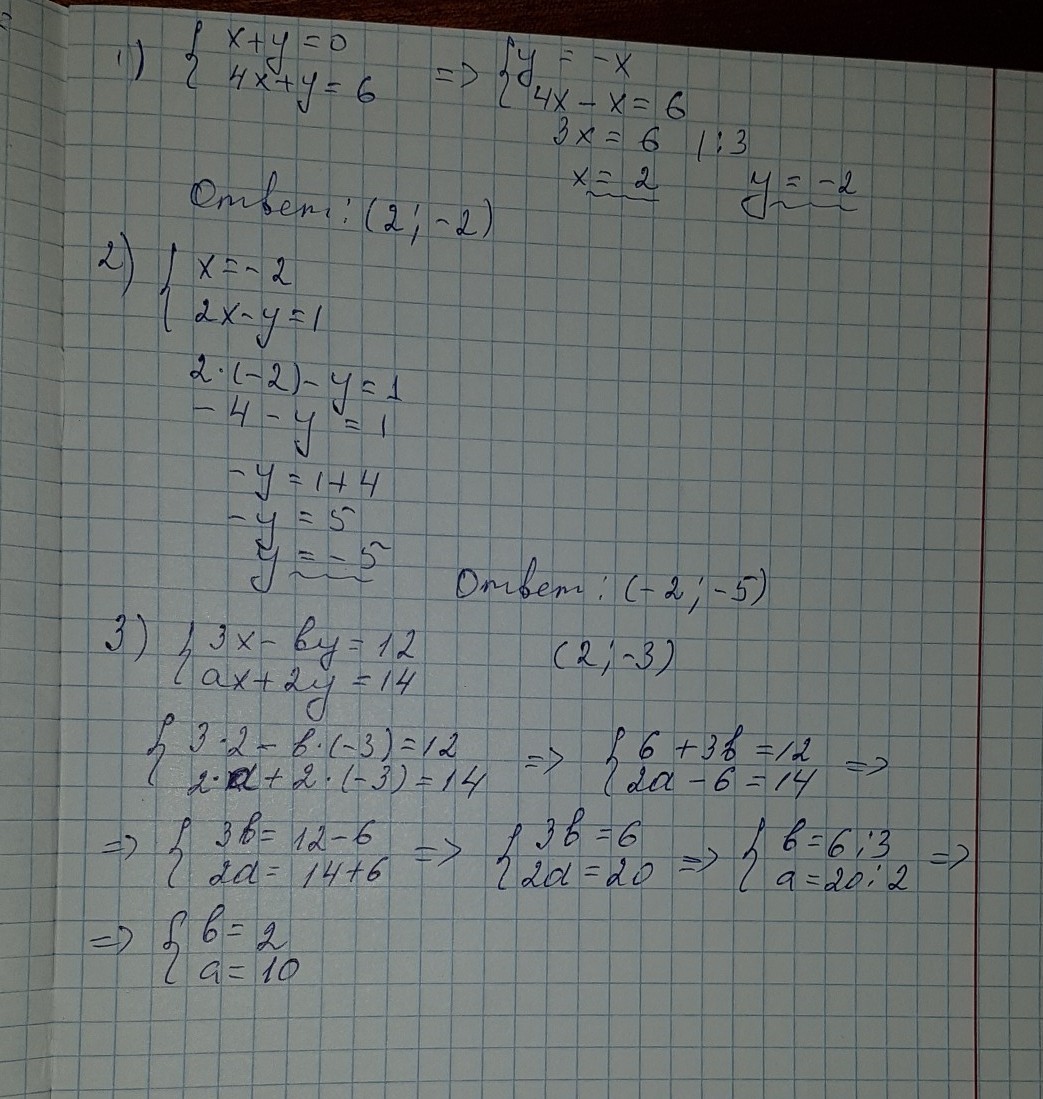 1) { x+y=0
4x+y=6 => { y = -x
4x-x=6
3x = 6 |:3
x = 2 y = -2
Ответ: (2; -2)
2) { x=-2
2x-y=1
2·(-2)-y=1
-4-y=1
-y=1+4
-y=5
y=-5
Ответ: (-2; -5)
3) { 3x-by=12 (2; -3)
ax+2y=14
{ 3·2-b·(-3)=12 => { 6+3b=12 =>
2·a+2·(-3)=14 2a-6=14
=> { 3b=12-6 => { 3b=6 => { b=6:3 =>
2a=14+6 2a=20 a=20:2
=> { b=2
a=10